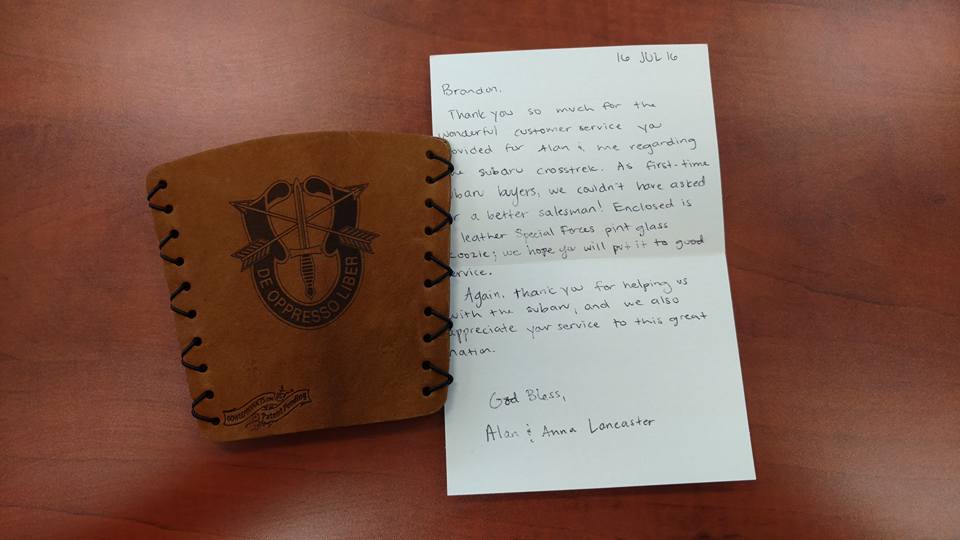 DE OPPRESSO LIBER
Patent Pending
16 JUL 16
Brandon,
Thank you so much for the
wonderful customer service you
ovided for Alan & me regarding
e subaru crosstrek. As first-time
ubaru buyers, we couldn't have asked
r a better salesman! Enclosed is
leather Special Forces pint glass
oozie; we hope you will put it to good
ervice.
Again, thank you for helping us
with the subaru, and we also
appreciate your service to this great
nation.
God Bless,
Alan & Anna Lancaster